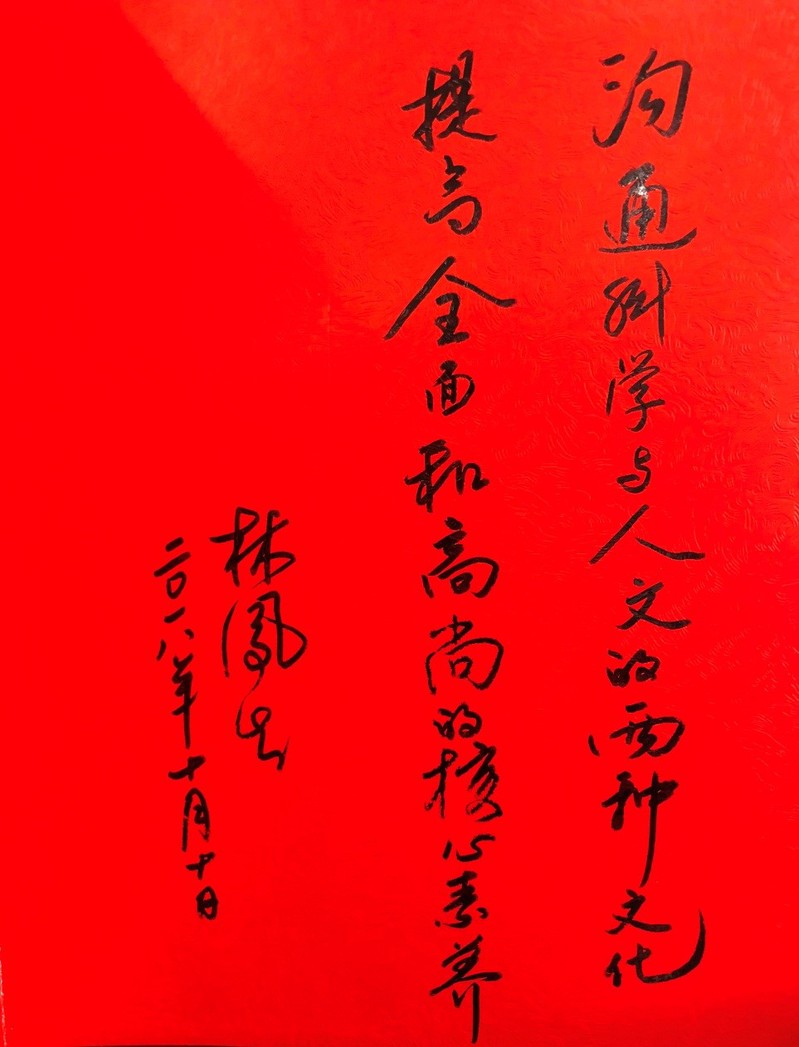 沟通科学与人文的两种文化
提高全面和高尚的核心素养
林凤生
二〇一八年十月十日